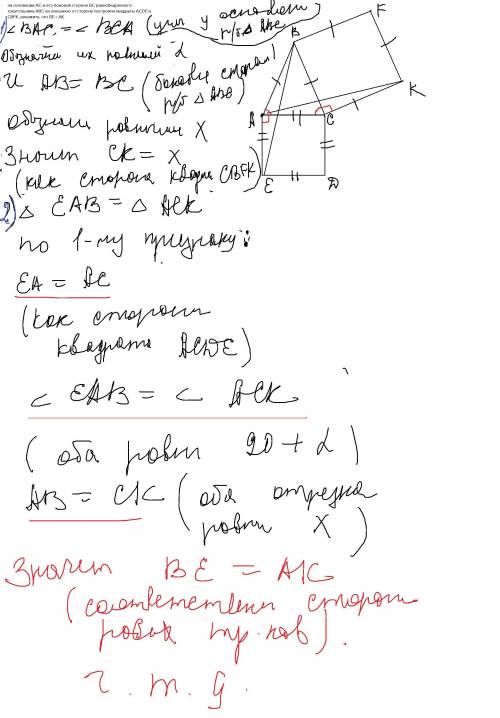 на основании АС и его боковой стороне ВС равнобедренного
треугольника АВС во внешнюю от сторону построили квадраты ACDE и
CBFK, докажите, что BE = AK
1) < BAC = < BCA (углы у основания
р/б Δ ABC
Обозначим их равными α
И AB = BC (боковые стороны
р/б Δ ABC)
обозначим равными X
Значит CK = X
(как сторона квадрата CBFK)
2) Δ EAB = Δ ACK
по 1-му признаку:
EA = AC
(как стороны
квадрата ACDE)
< EAB = < ACK
(оба равны 90 + α)
AB = CK (оба отрезка
равны X)
Значит BE = AK
(соответственны стороны
равных тр-ков).
Ч.т.д.
B
F
A
C
K
E
D